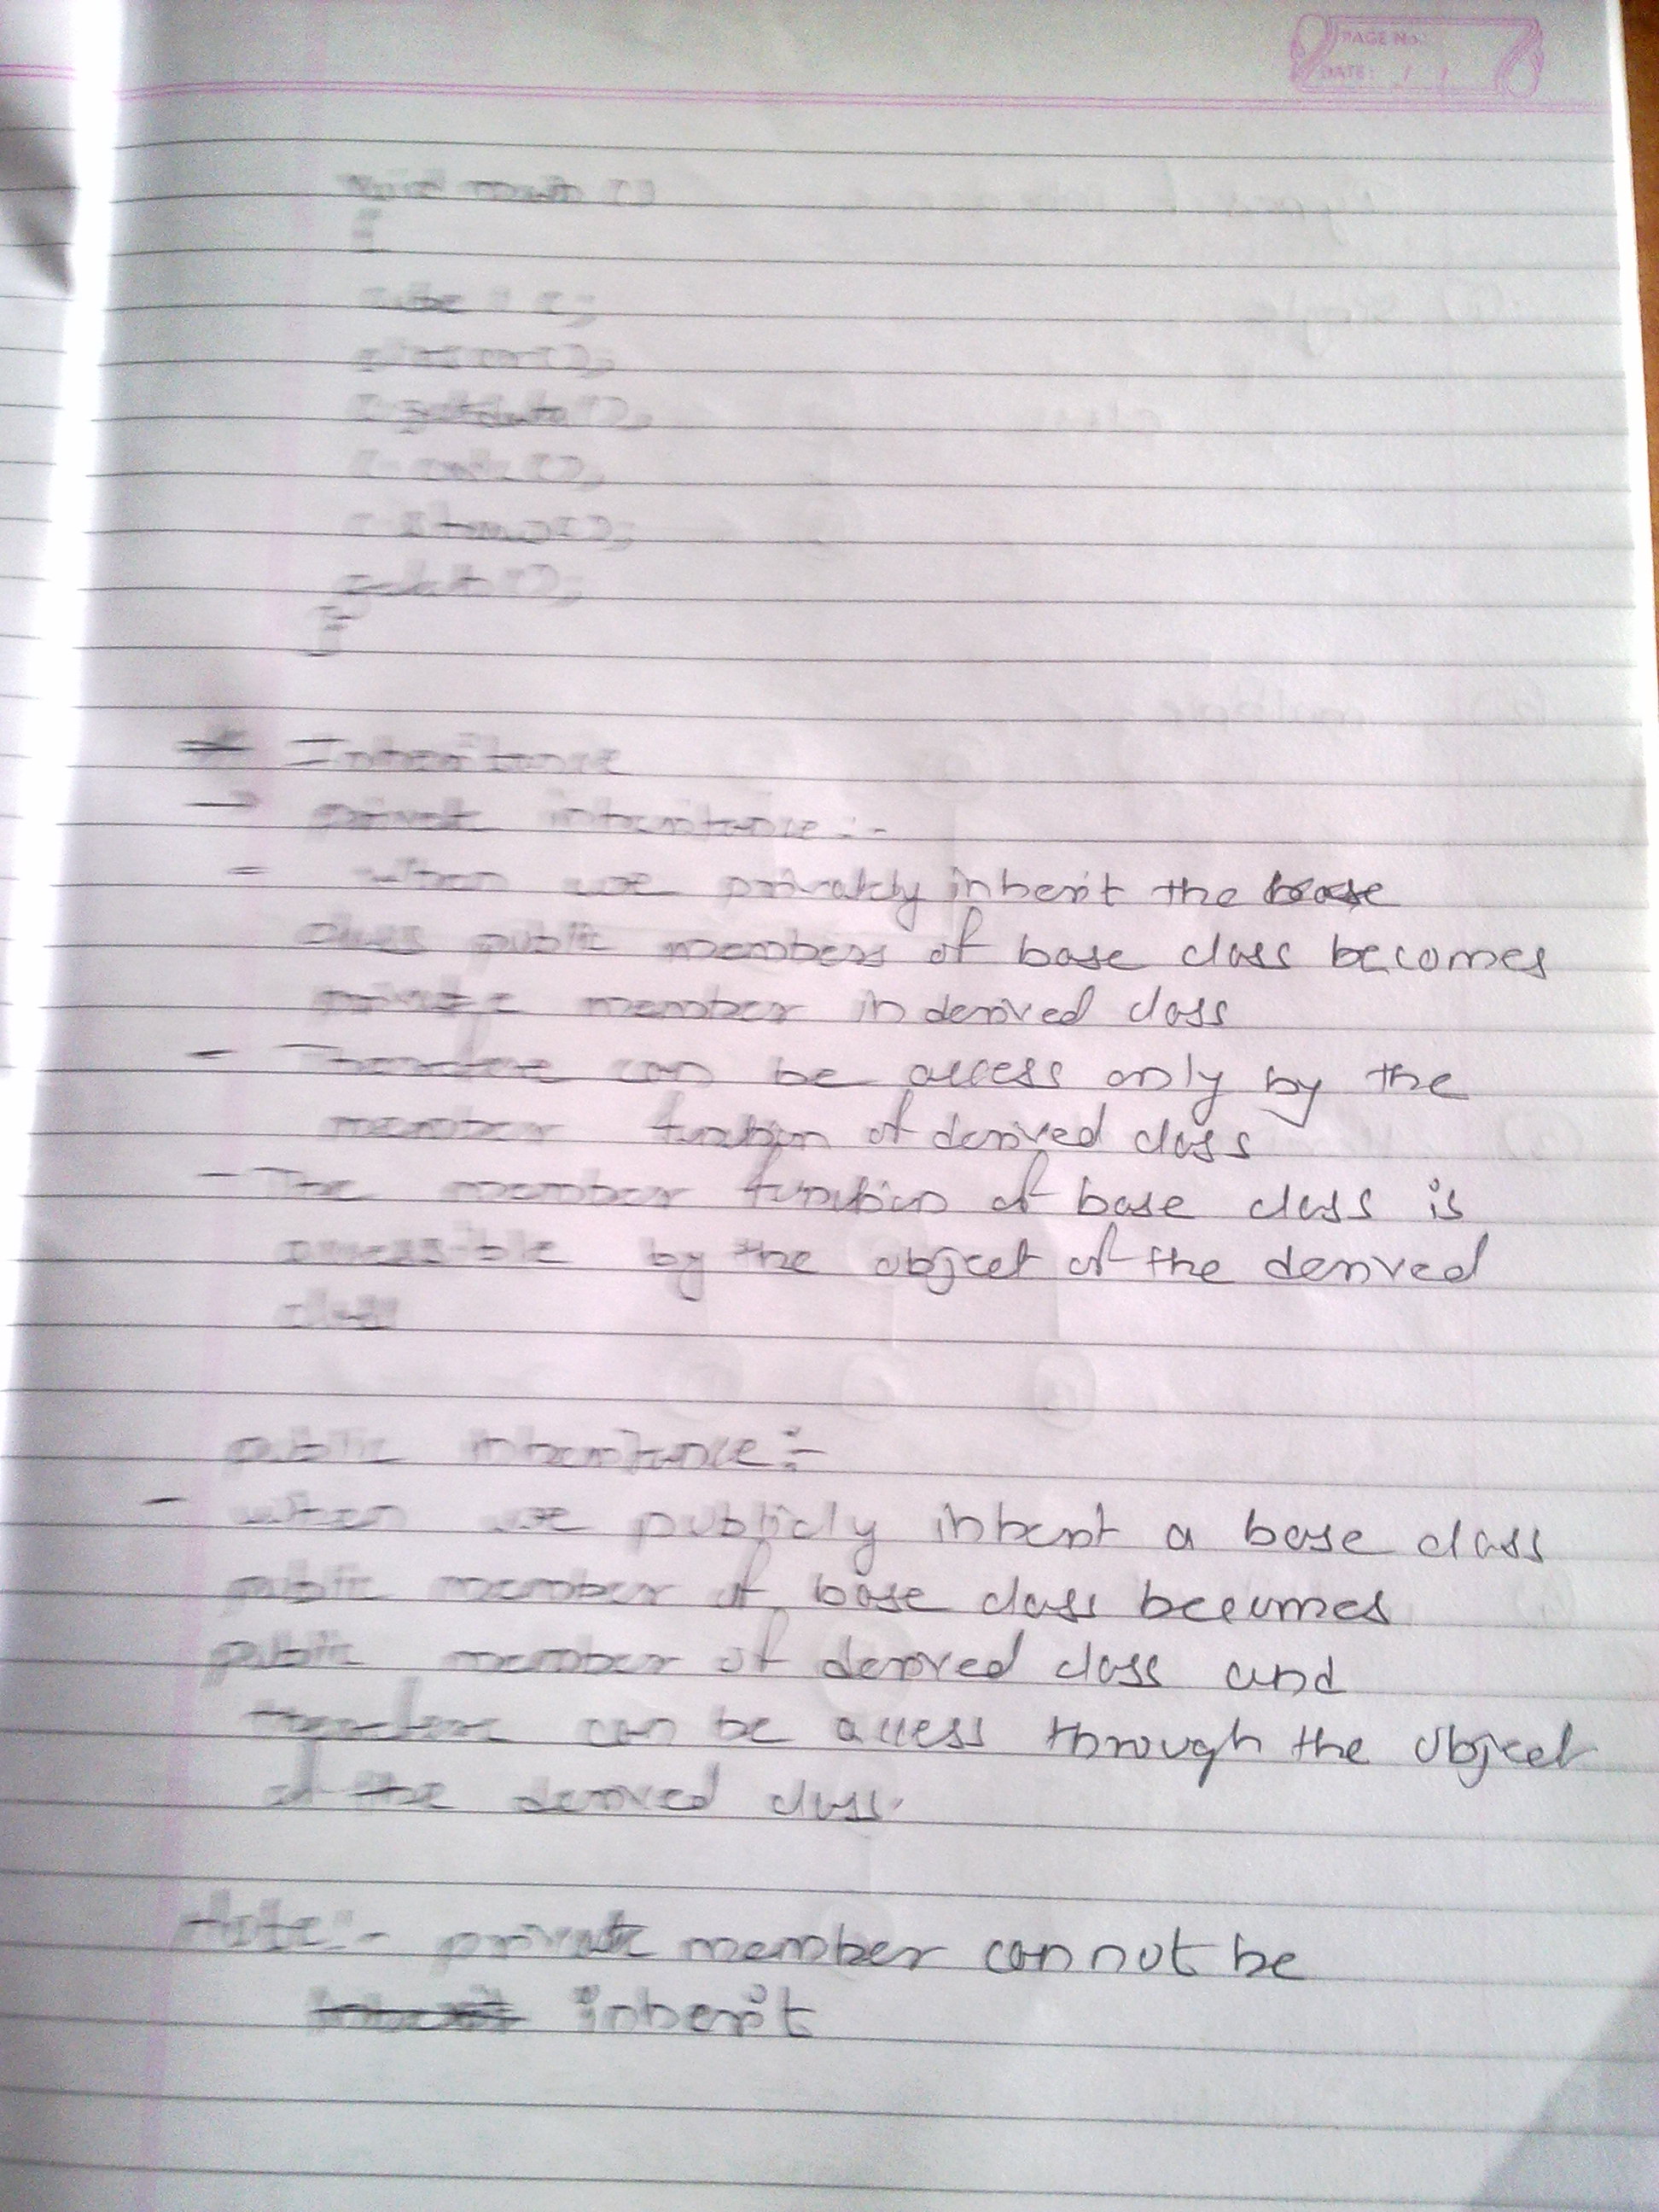 PAGE No.
DATE: / /
void main ()
{
clrscr();
getdata();
getch();
}
* Inheritance
→ private inheritance :-
- when we privately inherit the base
class public members of base class becomes
private member in derived class
- Therefore can be access only by the
member function of derived class
- The member function of base class is
accessible by the object of the derived
class
public inheritance :-
- when we publicly inherit a base class
public member of base class becomes
public member of derived class and
therefore can be access through the object
of the derived class.
Note :- private member cannot be
inherit